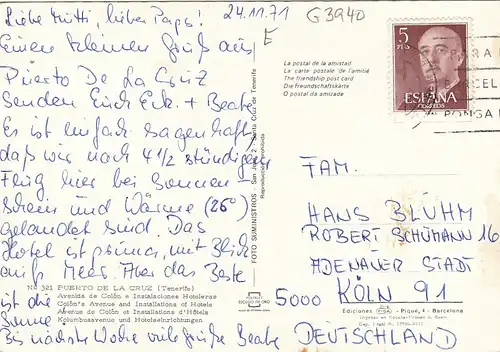 Liebe Mutti, lieber Paps!
24.11.71
G3940
E
Einen kleinen Gruß aus
Puerto De La Cruz
senden Euch Eck. + Beate
Es ist einfach sagenhaft,
daß wir nach 4 1/2 stündigem
Flug hier bei Sonnen-
schein und Wärme (26°)
gelandet sind. Das
Hotel ist prima, mit Blick
aufs Meer. Aber das Beste
ist die
Sonne
Bis nächste Woche viele Grüße Beate
Nº 321 PUERTO DE LA CRUZ (Tenerife)
Avenida de Colón e Instalaciones Hoteleras
Colón's Avenue and Installations of Hotels
Avenue de Colón et Installations d'Hôtels
Kolumbusavenue und Hoteleinrichtungen
La postal de la amistad
La carte postale de l'amitié
The friendship post card
Die freundschaftskarte
O postal da amizade
FOTO SUMINISTROS - San José, - Santa Cruz de Tenerife
Reproducción prohibida
5
PTS
ESPAÑA
CORREOS
PARA
BARCEL
PONGA
FAM.
HANS BLÜHM
ROBERT SCHÜMANN 16
ADENAUER STADT
5000 KÖLN 91
DEUTSCHLAND
POSTAL
ESCUDO DE ORO
Ediciones FISA - Piqué, 4 - Barcelona